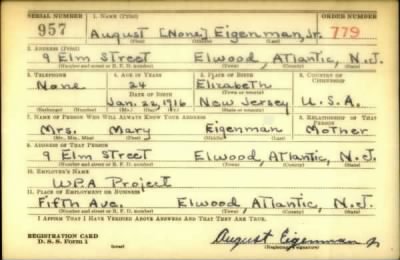 SERIAL NUMBER 1. NAME (Print) ORDER NUMBER
957 August [None] Eigenman, Jr. 779
(First) (Middle) (Last)
2. ADDRESS (Print)
9 Elm Street Elwood, Atlantic, N.J.
(Number and street or R. F. D. number) (Town) (County) (State)
3. TELEPHONE 4. AGE IN YEARS 5. PLACE OF BIRTH 6. COUNTRY OF CITIZENSHIP
None 24 Elizabeth
DATE OF BIRTH (Town or county)
Jan. 26, 1916 New Jersey U.S.A.
(Exchange) (Number) (Mo.) (Day) (Yr.) (State or country)
7. NAME OF PERSON WHO WILL ALWAYS KNOW YOUR ADDRESS 8. RELATIONSHIP OF THAT PERSON
Mrs. Mary Eigenman Mother
(Mr., Mrs., Miss) (First) (Middle) (Last)
9. ADDRESS OF THAT PERSON
9 Elm Street Elwood, Atlantic, N.J.
(Number and street or R. F. D. number) (Town) (County) (State)
10. EMPLOYER'S NAME
WPA Project
11. PLACE OF EMPLOYMENT OR BUSINESS
Fifth Ave. Elwood, Atlantic, N.J.
(Number and street or R. F. D. number) (Town) (County) (State)
I AFFIRM THAT I HAVE VERIFIED ABOVE ANSWERS AND THAT THEY ARE TRUE.
REGISTRATION CARD
D. S. S. Form 1 (over) August Eigenman Jr
(Registrant's signature)